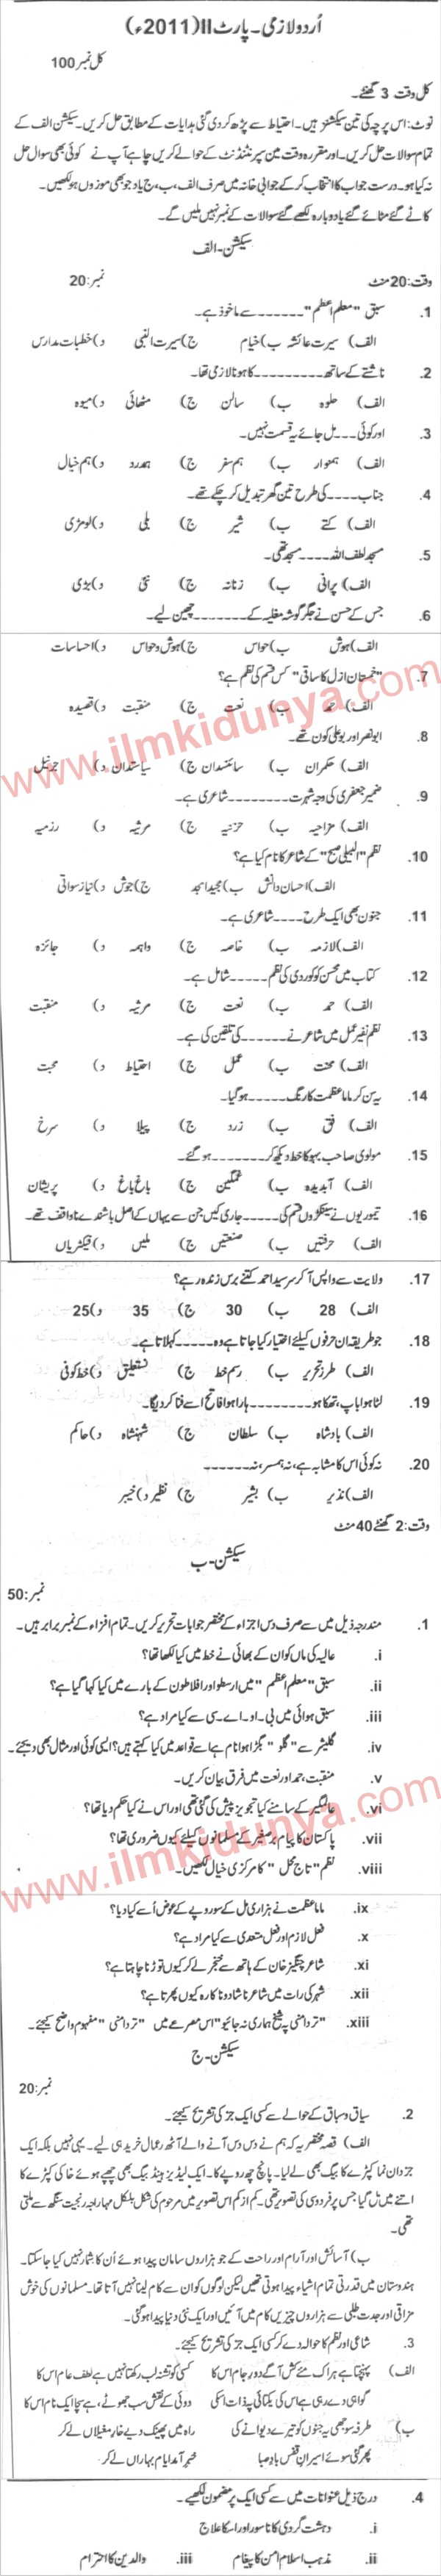 اُردو لازمی۔ پارٹ II (2011ء)
کل نمبر 100
کل وقت 3 گھنٹے۔
نوٹ: اس پرچہ کی تین سیکشنز ہیں۔ احتیاط سے پڑھ کر دی گئی ہدایات کے مطابق حل کریں۔ سیکشن الف کے
تمام سوالات حل کریں۔ اور مقررہ وقت میں سپرنٹنڈنٹ کے حوالے کریں چاہے آپ نے کوئی بھی سوال حل
نہ کیا ہو۔ درست جواب کا انتخاب کر کے جوابی خانہ میں صرف الف، ب، ج یا د جو بھی موزوں ہو لکھیں۔
کاٹے گئے مٹائے گئے یا دوبارہ لکھے گئے سوالات کے نمبر نہیں ملیں گے۔
سیکشن-الف
وقت: 20 منٹ نمبر: 20
1. سبق "معلم اعظم" ------ سے ماخوذ ہے۔
الف) سیرت عائشہ ب) خیام ج) سیرت النبی د) خطبات مدارس
2. ناشتے کے ساتھ --------- کا ہونا لازمی تھا۔
الف) حلوہ ب) سالن ج) مٹھائی د) میوہ
3. اور کوئی --- مل جائے یہ قسمت نہیں۔
الف) ہمنوار ب) ہم سفر ج) ہمدرد د) ہم خیال
4. جناب ---- کی طرح تین گھر تبدیل کر چکے تھے۔
الف) کتے ب) شیر ج) بلی د) لومڑی
5. مسجد لطف اللہ ---- مسجد تھی۔
الف) پرانی ب) زنانہ ج) نئی د) بڑی
6. جس کے حسن نے جگر گوشہ مغلیہ کے ------- چھین لیے۔
الف) ہوش ب) حواس ج) ہوش و حواس د) احساسات
7. "خمستان ازل کا ساقی" کس قسم کی نظم ہے؟
الف) حمد ب) نعت ج) منقبت د) قصیدہ
8. ابو نصر اور بو علی کون تھے۔
الف) حکمران ب) سائنسدان ج) سیاستدان د) جرنیل
9. ضمیر جعفری کی وجہ شہرت --------- شاعری ہے۔
الف) مزاحیہ ب) حزنیہ ج) مرثیہ د) رزمیہ
10. نظم "البیلی صبح" کے شاعر کا نام کیا ہے؟
الف) احسان دانش ب) مجید امجد ج) جوش د) نیاز سواتی
11. جنون بھی ایک طرح ---- شاعری ہے۔
الف) لازمہ ب) خاصہ ج) واہمہ د) جائزہ
12. کتاب میں محسن کوکوروی کی نظم ----- شامل ہے۔
الف) حمد ب) نعت ج) مرثیہ د) منقبت
13. نظم نفیر عمل میں شاعر نے ------ کی تلقین کی ہے۔
الف) محنت ب) عمل ج) احتیاط د) محبت
14. یہ سن کر ماما عظمت کا رنگ ----- ہو گیا۔
الف) فق ب) زرد ج) پیلا د) سرخ
15. مولوی صاحب بہو کا خط دیکھ کر ------- ہو گئے۔
الف) آبدیدہ ب) غمگین ج) باغ باغ د) پریشان
16. تیموریوں نے سینکڑوں قسم کی ----- جاری کیں جن سے یہاں کے اصل باشندے ناواقف تھے۔
الف) حرفتیں ب) صنعتیں ج) ملیں د) فیکٹریاں
17. ولایت سے واپس آ کر سرسید احمد کتنے برس زندہ رہے؟
الف) 28 ب) 30 ج) 35 د) 25
18. جو طریقہ ان حرفوں کیلئے اختیار کیا جاتا ہے وہ ----- کہلاتا ہے۔
الف) طرز تحریر ب) رسم خط ج) نستعلیق د) خط کوفی
19. لٹا ہوا باپ، تھکا ہو -------- ہارا ہوا فاتح اسے فنا کر دیگا۔
الف) بادشاہ ب) سلطان ج) شہنشاہ د) حاکم
20. نہ کوئی اس کا مشابہ ہے، نہ ہمسر، نہ ------
الف) نذیر ب) بشیر ج) نظیر د) خیبر
وقت: 2 گھنٹے 40 منٹ
سیکشن-ب
نمبر: 50
1. مندرجہ ذیل میں سے صرف دس اجزاء کے مختصر جوابات تحریر کریں۔ تمام افزاء کے نمبر برابر ہیں۔
i. عالیہ کی ماں کو ان کے بھائی نے خط میں کیا لکھا تھا؟
ii. سبق "معلم اعظم" میں ارسطو اور افلاطون کے بارے میں کیا کہا گیا ہے؟
iii. سبق ہوائی میں بی۔ او۔ اے۔ سی سے کیا مراد ہے؟
iv. گلیشر سے "گلو" بگڑا ہوا نام ہے اسے قواعد میں کیا کہتے ہیں؟ ایسی کوئی اور مثال بھی دیجئے۔
v. منقبت، حمد اور نعت میں فرق بیان کریں۔
vi. عالمگیر کے سامنے کیا تجویز پیش کی گئی تھی اور اس نے کیا حکم دیا تھا؟
vii. پاکستان کا پیام برصغیر کے مسلمانوں کیلئے کیوں ضروری تھا؟
viii. نظم "تاج محل" کا مرکزی خیال لکھیں۔
ix. ماما عظمت نے ہزاری مل کے سو روپے کے عوض اُسے کیا دیا؟
x. فعل لازم اور فعل متعدی سے کیا مراد ہے؟
xi. شاعر چنگیز خان کے ہاتھ سے خنجر لے کر کیوں توڑنا چاہتا ہے؟
xii. شہر کی رات میں شاعر ناشاد و ناکارہ کیوں پھرتا ہے؟
xiii. "تر دامنی پہ شیخ ہماری نہ جائیو" اس مصرعے میں "تر دامنی" مفہوم واضح کیجئے۔
سیکشن-ج
نمبر: 20
2. سیاق و سباق کے حوالے سے کسی ایک جز کی تشریح کیجئے۔
الف) قصہ مختصر یہ کہ ہم نے دس دس آنے والے آٹھ رومال خرید ہی لیے۔ یہی نہیں بلکہ ایک
جزدان نما کپڑے کا بیگ بھی لے لیا۔ پانچ چھ روپے کا۔ ایک لیڈیز ہینڈ بیگ بھی چھپے ہوئے خاکی کپڑے کا
اتنے میں مل گیا جس پر فردوسی کی تصویر تھی۔ کم از کم اس تصویر میں مرحوم کی شکل بالکل مہاراجہ رنجیت سنگھ سے ملتی
تھی۔
ب) آسائش اور آرام اور راحت کے جو ہزاروں سامان پیدا ہوئے اُن کا شمار نہیں کیا جا سکتا۔
ہندوستان میں قدرتی تمام اشیاء پیدا ہوتی تھیں لیکن لوگوں کو ان سے کام لینا نہیں آتا تھا۔ مسلمانوں کی خوش
مزاقی اور جدت طلبی سے ہزاروں چیزیں کام میں آئیں اور ایک نئی دنیا پیدا ہو گئی۔
3. شاعی اور نظم کا حوالہ دے کر کسی ایک جز کی تشریح کیجئے۔
الف) پہنچتا ہے ہر اک مے کش آگے دور جام اس کا کسی کو تشنہ لب رکھتا نہیں ہے لطف عام اس کا
گواہی دے رہی ہے اس کی یکتائی پہ ذات اسکی دوئی کے نقش سب جھوٹے، ہے سچا ایک نام اس کا
ب) طرفہ سوجھی یہ جنوں کو تیرے دیوانے کی راہ میں پھینک دیے خار مغیلاں لے کر
پھر گئی سوئے اسیران قفس باد صبا خبر آمد ایام بہاراں لے کر
4. درج ذیل عنوانات میں سے کسی ایک پر مضمون لکھیے۔
i. دہشت گردی کا ناسور اور اسکا علاج
ii. مذہب اسلام امن کا پیغام iii. والدین کا احترام
www.ilmkidunya.com
www.ilmkidunya.com